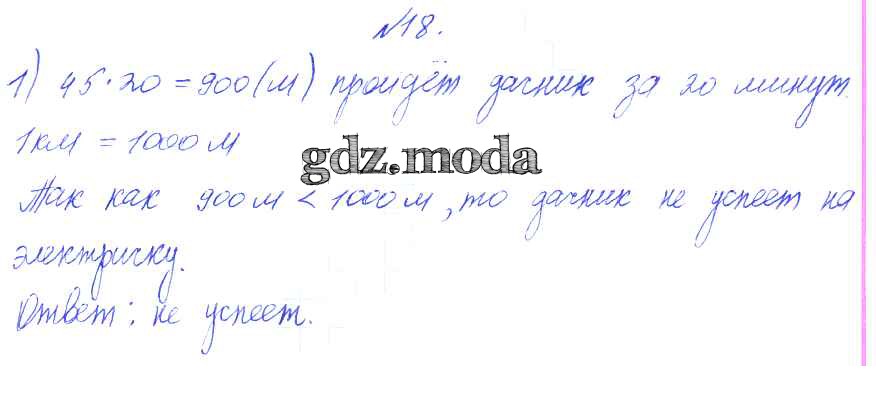 №18.
1) 45·20=900(м) пройдёт дачник за 20 минут.
1км = 1000м
gdz.moda
Так как 900м < 1000м, то дачник не успеет на
электричку.
Ответ: не успеет.